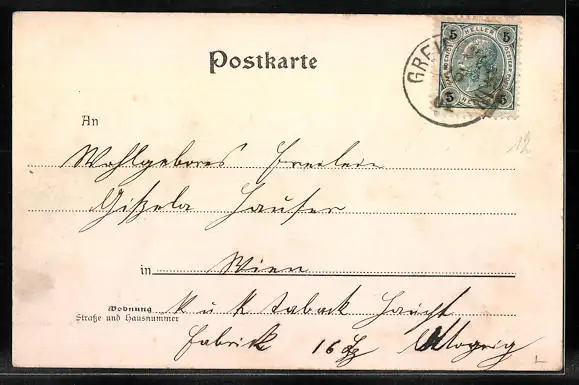 Postkarte
5 HELLER 5
GREI
5 5
12
An
Wohlgebores Freilein
Gissela Hauser
in Wien
Wohnung
Straße und Hausnummer
k u k Taback Haupt
Fabrik 16